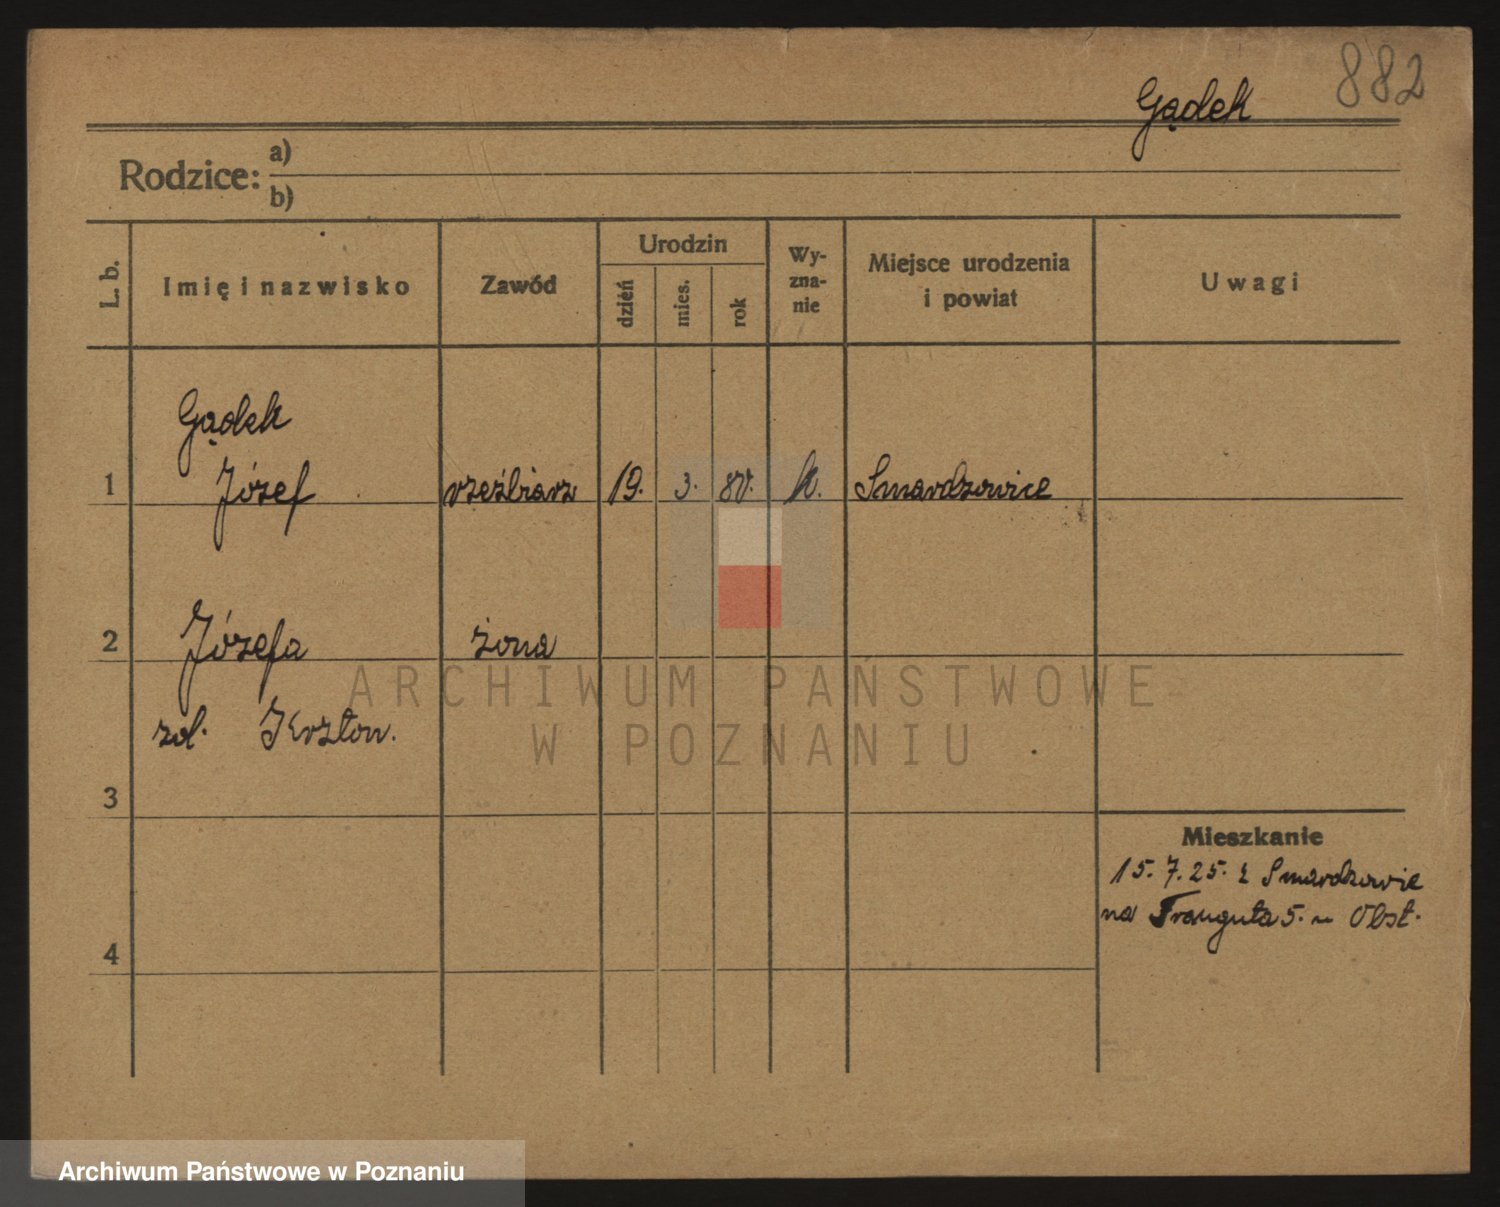 882
Gądek
Rodzice: a)
b)
L. b.
Imię i nazwisko
Zawód
Urodzin
dzień
mies.
rok
Wy-
zna-
nie
Miejsce urodzenia
i powiat
Uwagi
Gądek
1 Józef rzeźbiarz 19. 3. 80. k. Smardzowice
2 Józefa żona
3
4
Mieszkanie
15. 7. 25. z Smardzowic
na Trauguta 5. u Obst.
ARCHIWUM PAŃSTWOWE
W POZNANIU
Archiwum Państwowe w Poznaniu